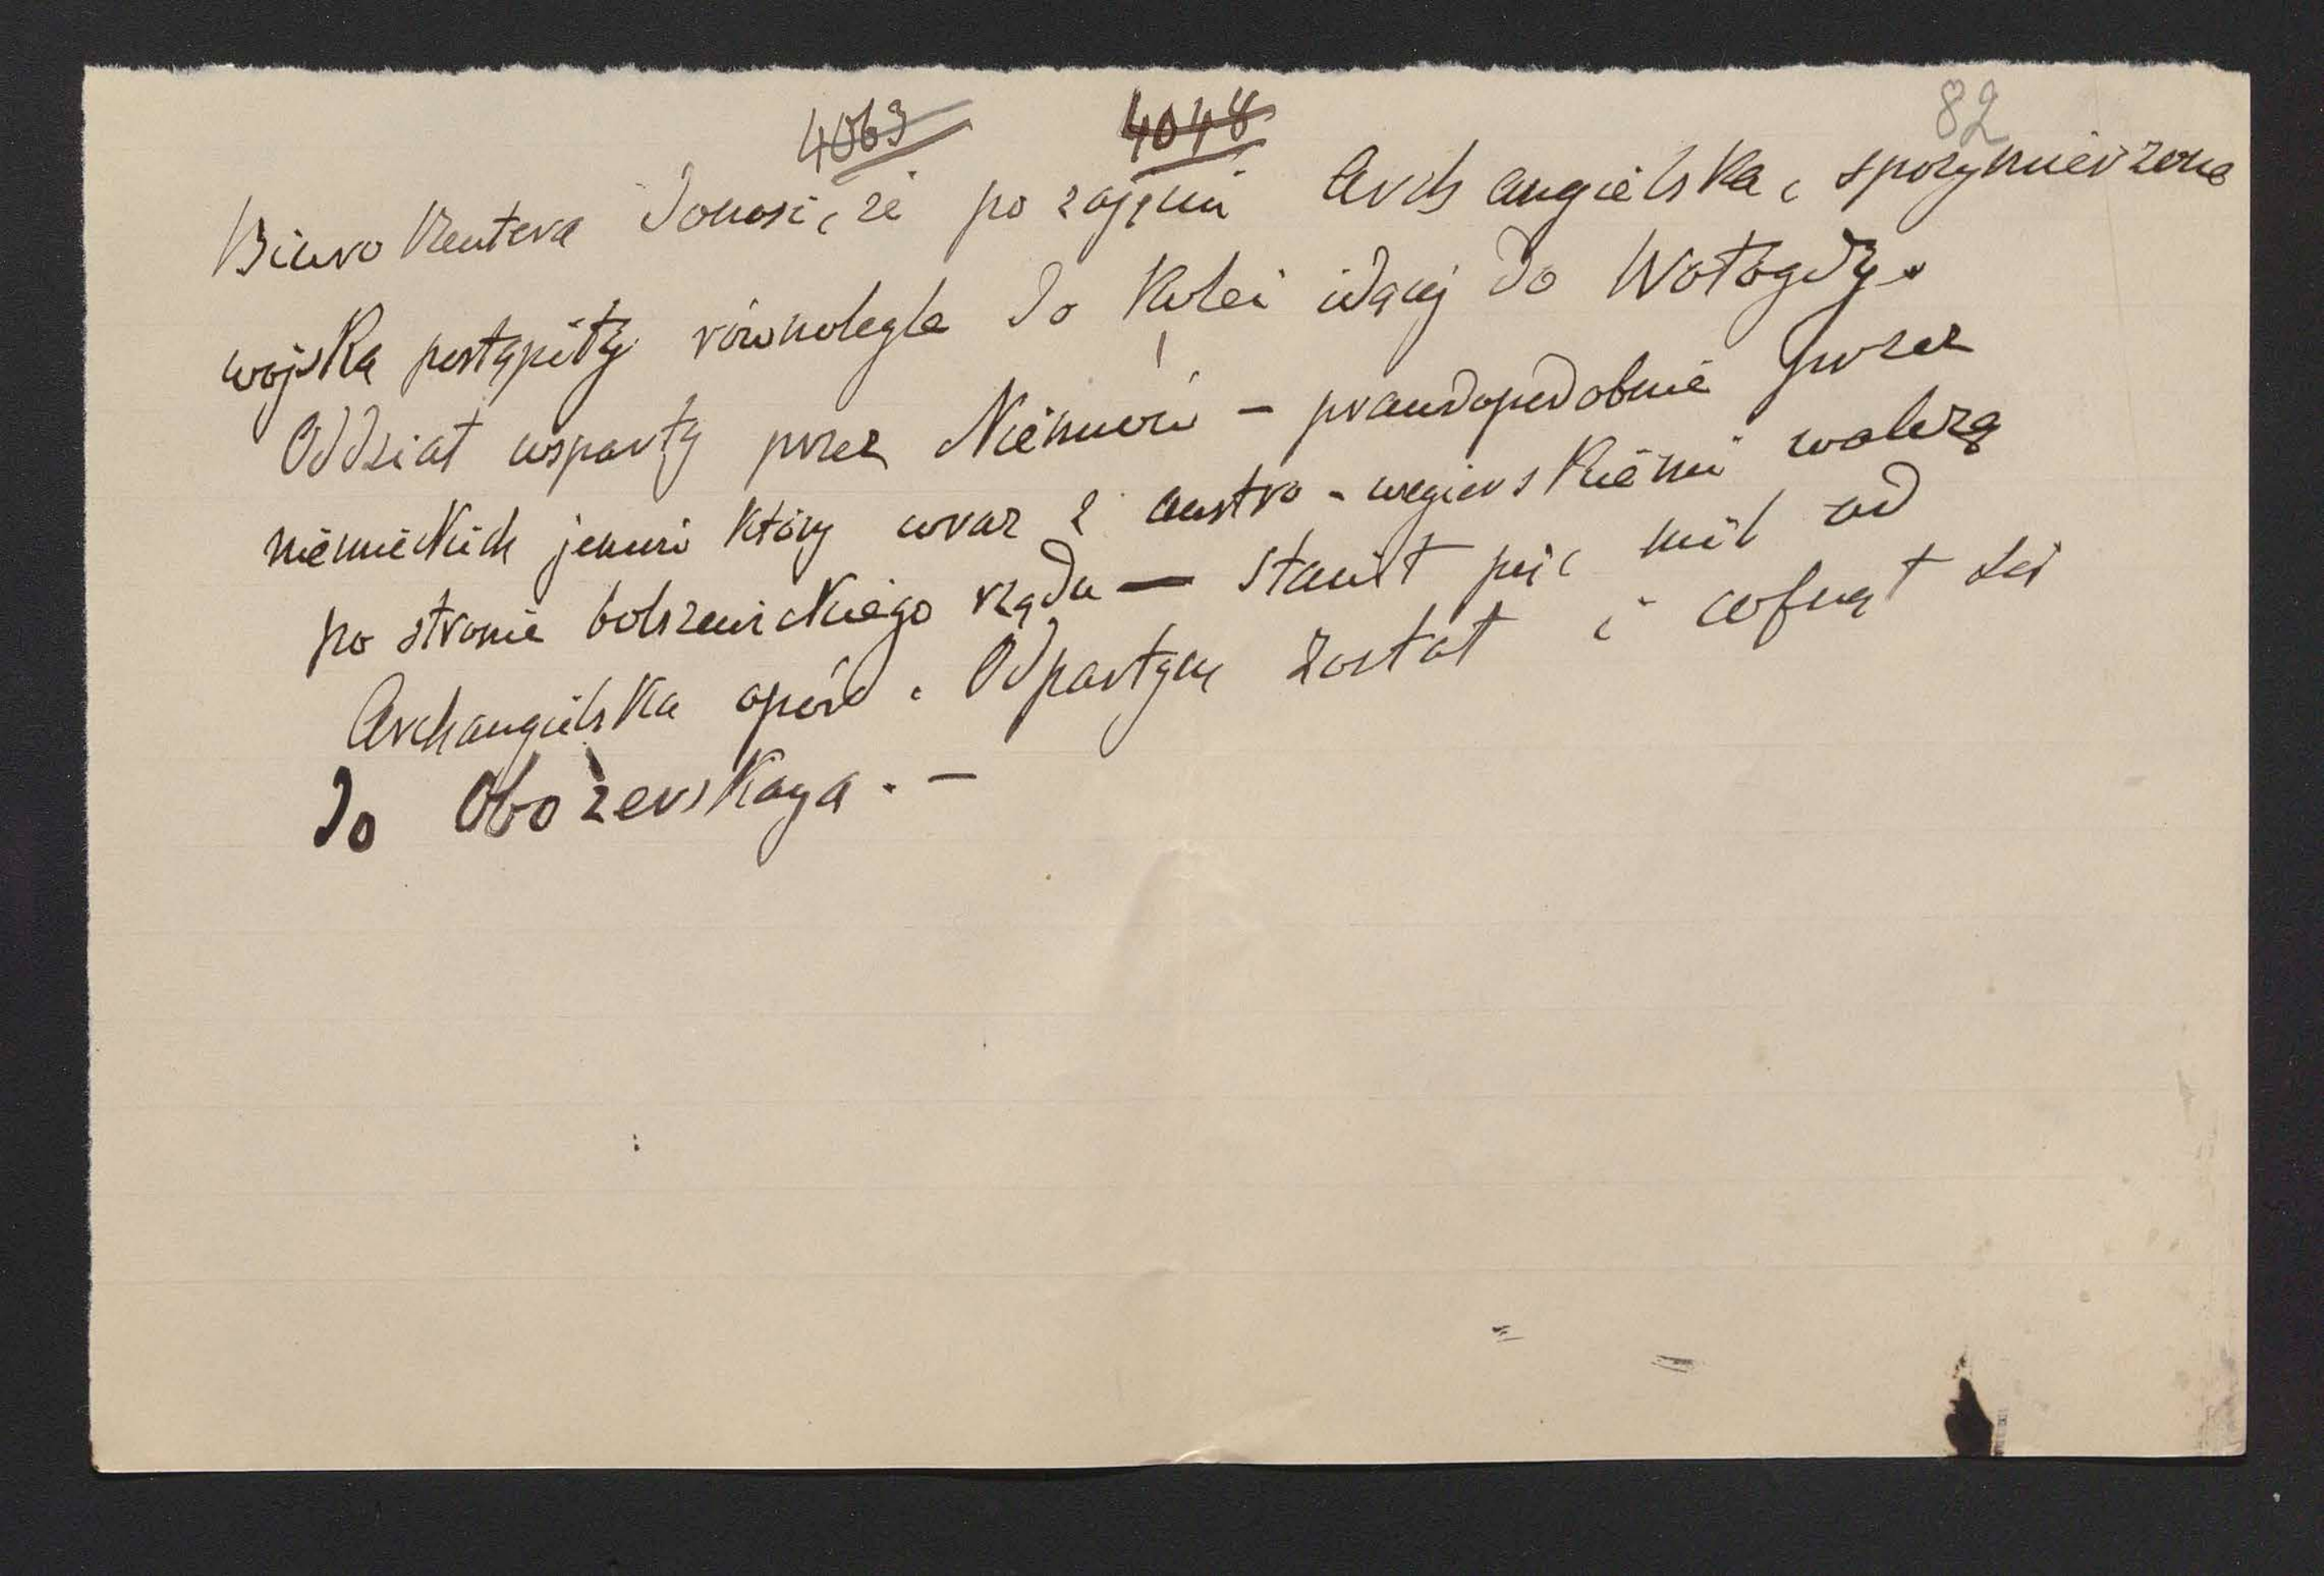 82
4063 4048
Biuro Reutera donosi, że po zajęciu Archangielska, sprzymierzone
wojska postąpiły równolegle do kolei idącej do Wołogdy.
Oddział wsparty przez Niemców – prawdopodobnie przez
niemieckich jeńców który wraz z austro-węgierskiemi walczą
po stronie bolszewickiego rządu — stawił pięć mil od
Archangielska opór. Odpartym został i cofnął się
do Obozerskaya. –